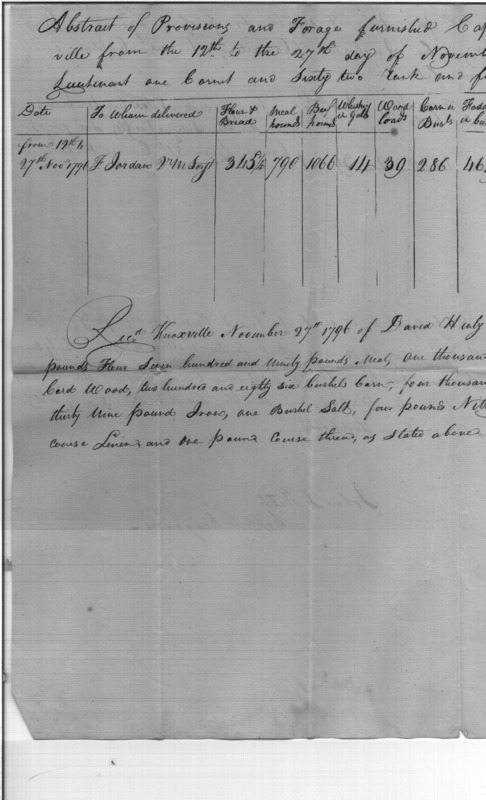 Abstract of Provisions and Forage furnished Cap
ville from the 12th to the 27th day of Novemb
Lieutenant one Cornet and Sixty two rank and f
Date To Whom delivered Flour & Bread Meal pounds Beef pounds Whisky in Gals Wood loads Corn in Bush Fodd in bu
from 12th to
27th Nov 1796 F Jordan 345 790 1066 14 39 286 46
Rec'd Knoxville November 27th 1796 of David Henly
pounds Flour Seven hundred and ninety pounds Meal, one thousan
Cord Wood, two hundred and eighty six bushels Corn, four thousan
thirty nine pound Iron, one Bushel Salt, four pounds Nit
course Linen and one pound course thread, as stated above